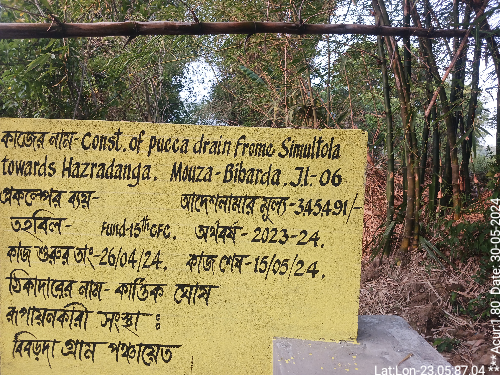 কাজের নাম- Const. of pucca drain frome Simultola
towards Hazradanga. Mouza-Bibarda, Jl-06
প্রকল্পের ব্যয়- আদেশনামার মূল্য-345491/-
তহবিল- Fund-15th CFC. অর্থবর্ষ-2023-24.
কাজ শুরুর তাং-26/04/24. কাজ শেষ-15/05/24.
ঠিকাদারের নাম- কার্ত্তিক ঘোষ
রূপায়নকারী সংস্থা :
বিবড়দা গ্রাম পঞ্চায়েত
Lat:Lon-23.05:87.04
** Acuril 80 Date: 30-05-2024